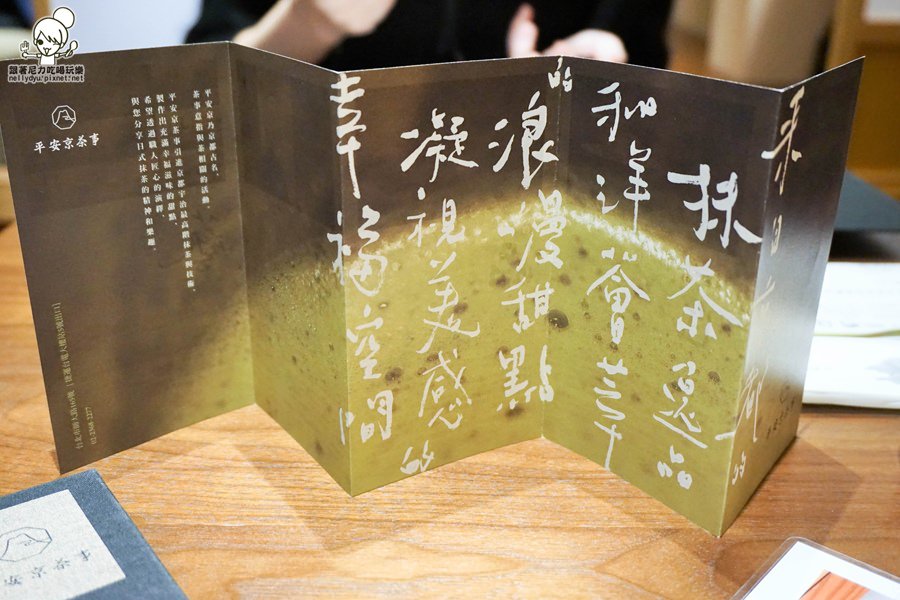 跟著尼力吃喝玩樂
nellydyu.pixnet.net
平安京茶事
平安京為京都古名,
茶事意指與茶相關的活動,
平安京茶事引進京都宇治最高階抹茶與技術,
製作出充滿幸福滋味的甜點,
希望透過職人匠心的演繹,
與您分享日式抹茶的精神和樂趣。
02-2368-2277
來自京都的
抹茶逸品
和洋薈萃
的
浪漫甜點
凝視美感的
幸福空間
安京茶事